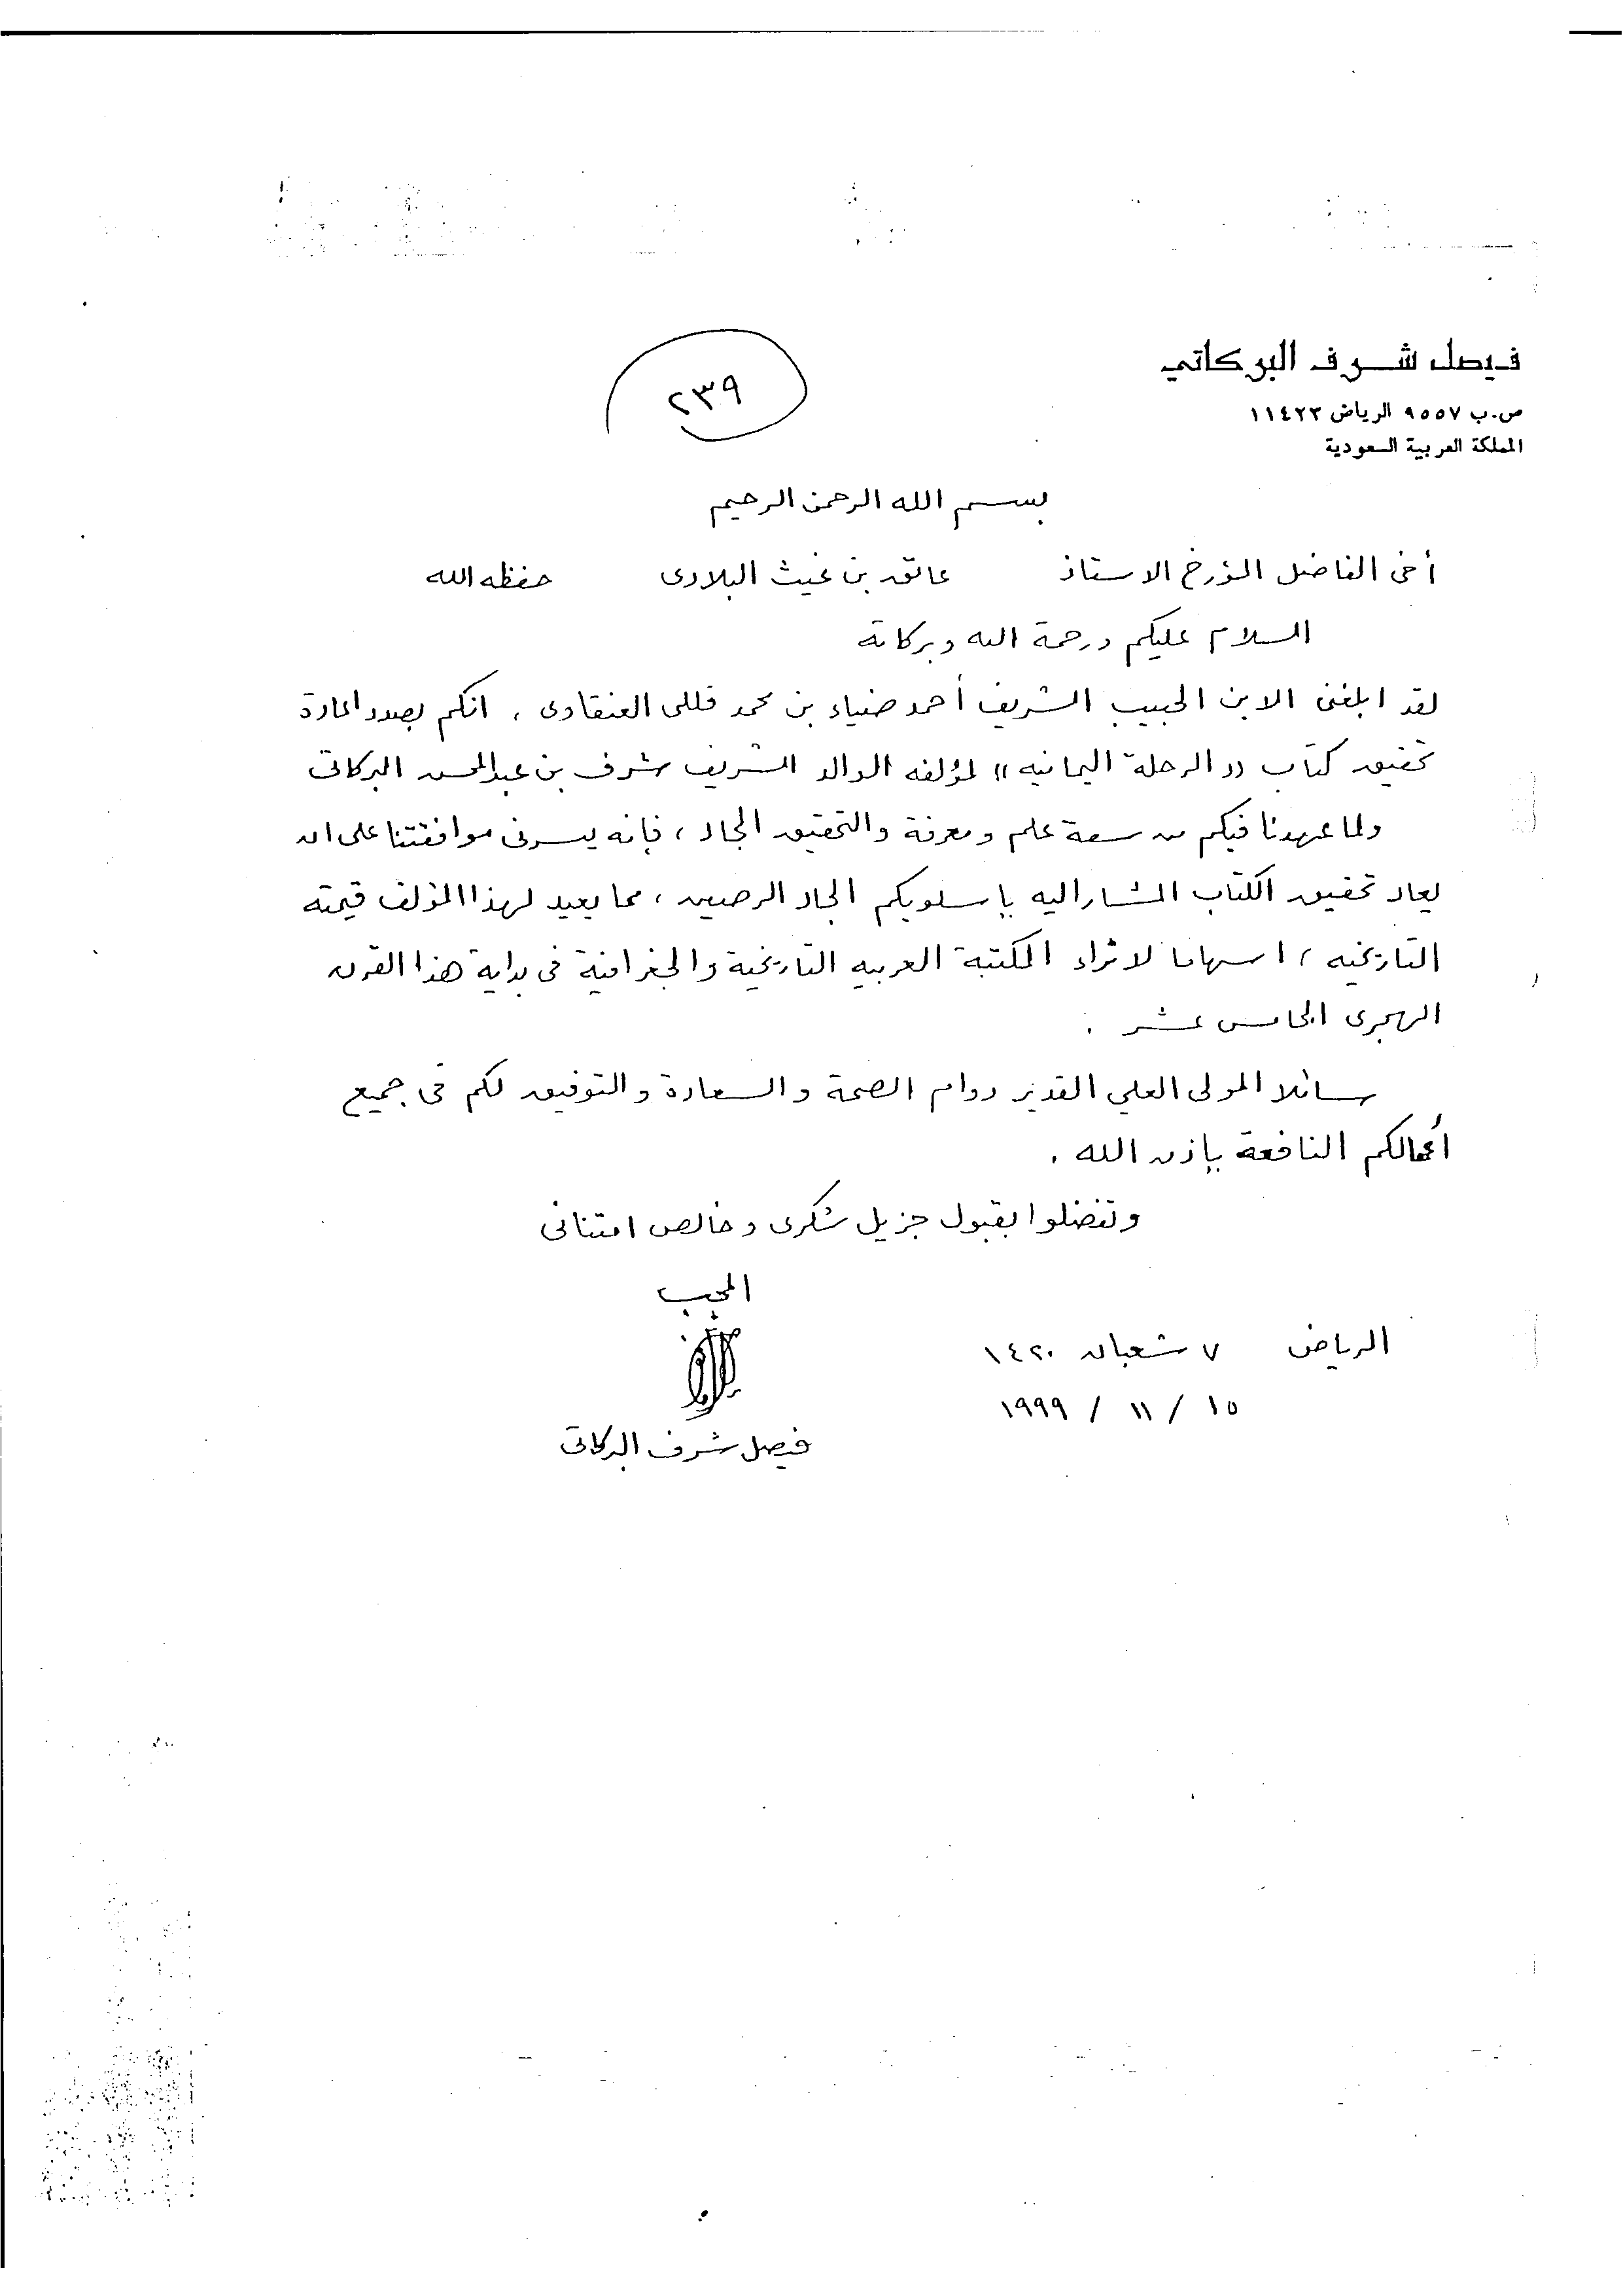 فيصل شرف البركاتي
ص.ب ٩٥٥٧ الرياض ١١٤٢٣
المملكة العربية السعودية
٢٣٩
بسم الله الرحمن الرحيم
أخى الفاضل المؤرخ الاستاذ عاتق بن غيث البلادى حفظه الله
السلام عليكم ورحمة الله وبركاته
لقد ابلغنى الابن الحبيب الشريف أحمد ضياء بن محمد قللى العنقاوى ، انكم بصدد اعادة
تحقيق كتاب « الرحلة اليمانيه » لمؤلفه الوالد الشريف شرف بن عبدالمحسن البركاتى
ولما عهدنا فيكم من سعة علم ومعرفة والتحقيق الجاد ، فإنه يسرنى موافقتنا على ان
يعاد تحقيق الكتاب المشار اليه بإسلوبكم الجاد الرصين ، مما يعيد لهذا المؤلف قيمته
التاريخيه ، اسهاما لاثراء المكتبة العربيه التاريخية والجغرافية فى بداية هذا القرن
الهجرى الخامس عشر .
سائلا المولى العلي القدير دوام الصحة والسعادة والتوفيق لكم فى جميع
أعمالكم النافعة بإذن الله .
وتفضلوا بقبول جزيل شكرى وخالص امتنانى
المحب
الرياض ٧ شعبان ١٤٢٠
١٥ / ١١ / ١٩٩٩
فيصل شرف البركاتى